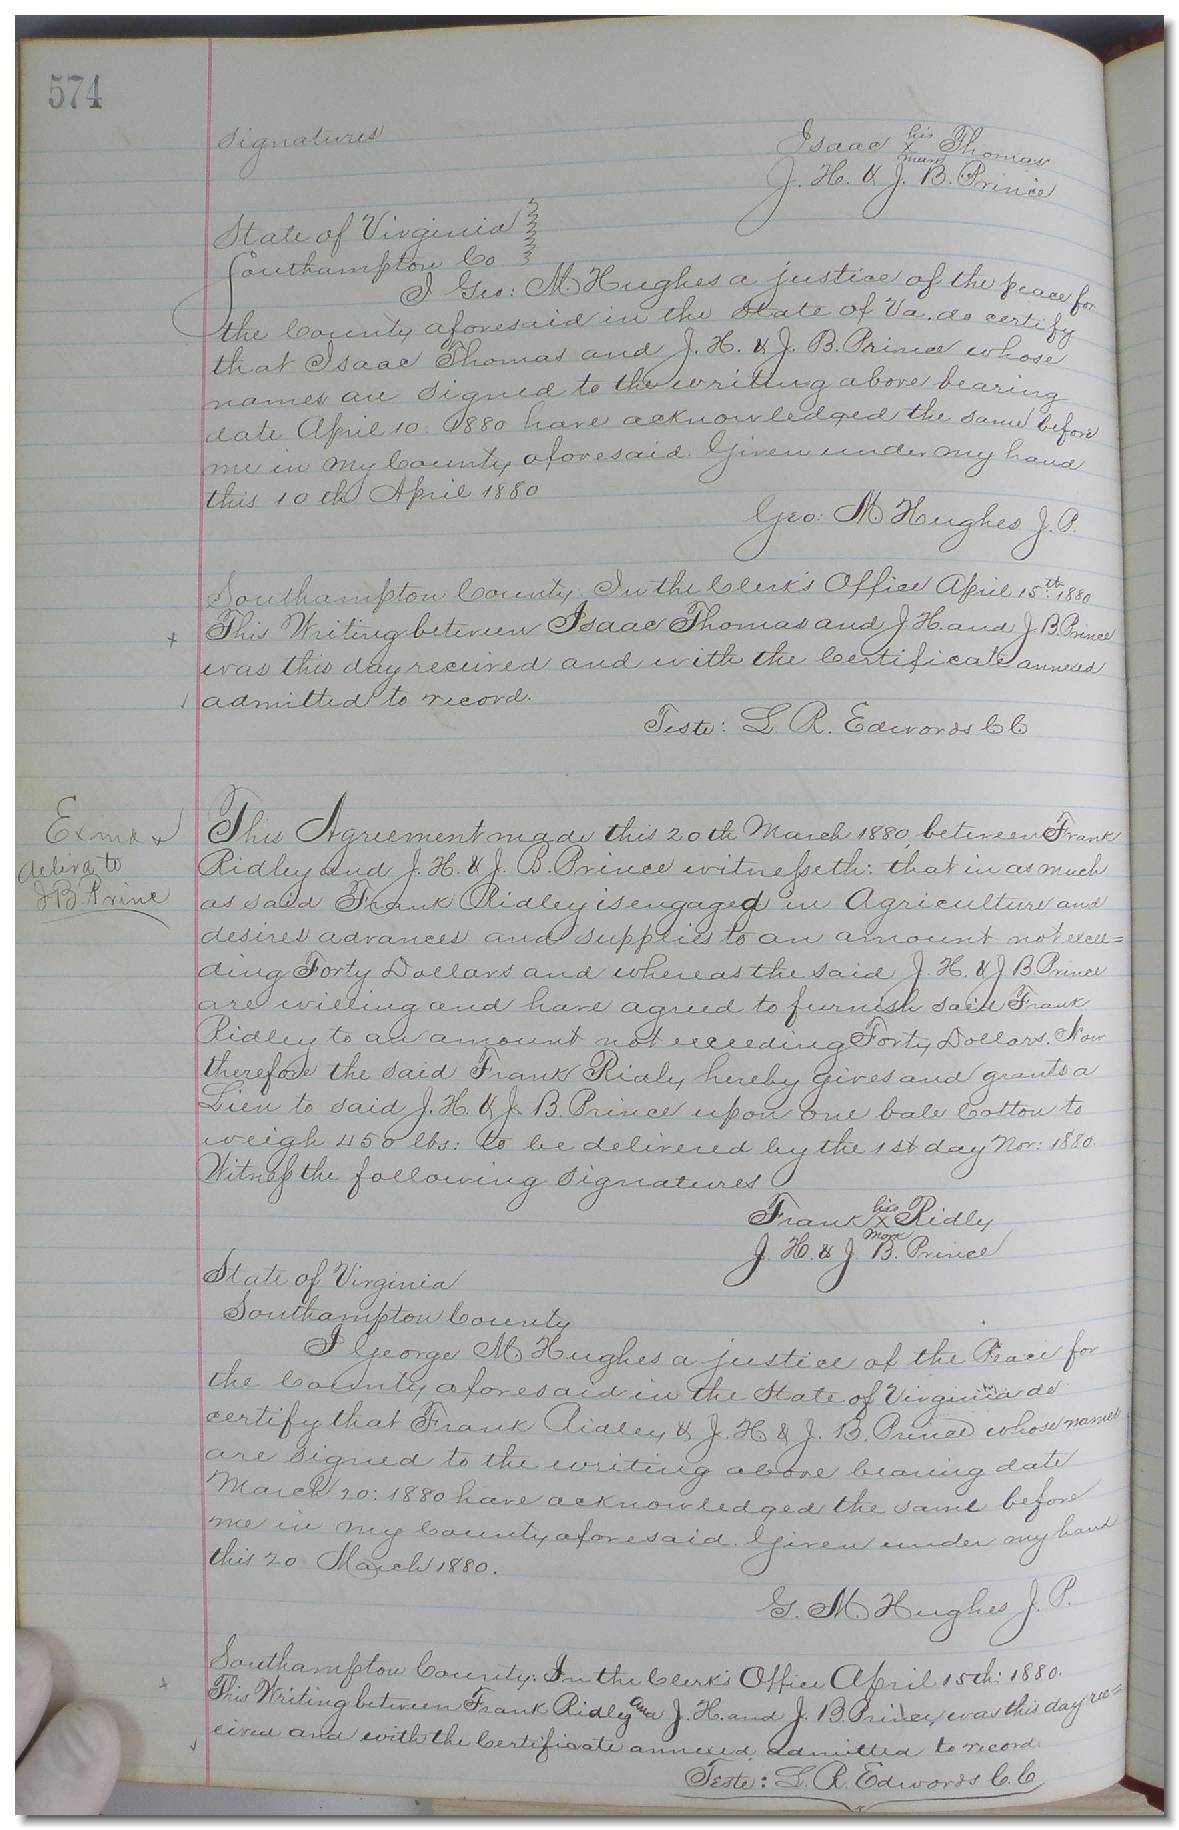 574
signatures
Isaac his x mark Thomas
J. H. & J. B. Prince
State of Virginia
Southampton Co
I Geo: M Hughes a justice of the peace for
the County aforesaid in the State of Va. do certify
that Isaac Thomas and J. H. & J. B. Prince whose
names are signed to the writing above bearing
date April 10: 1880 have acknowledged the same before
me in my County aforesaid. Given under my hand
this 10th April 1880
Geo: M Hughes J. P.
Southampton County: In the Clerk's Office April 15th 1880
This Writing between Isaac Thomas and J H. and J B. Prince
was this day received and with the Certificate annexed
admitted to record.
Teste: L R. Edwards C C
Exmd &
delivd to
J B. Prince
This Agreement made this 20th March 1880, between Frank
Ridley and J. H. & J. B. Prince witnesseth: that in as much
as said Frank Ridley is engaged in Agriculture and
desires advances and supplies to an amount not excee=
ding Forty Dollars and whereas the said J. H. & J B. Prince
are willing and have agreed to furnish said Frank
Ridley to an amount not exceeding Forty Dollars. Now
therefore the said Frank Ridly hereby gives and grants a
Lien to said J. H. & J. B. Prince upon one bale Cotton to
weigh 450 lbs: to be delivered by the 1st day Nov: 1880.
Witness the following signatures
Frank his x mark Ridly
J. H. & J. B. Prince
State of Virginia
Southampton County
I George M Hughes a justice of the Peace for
the County aforesaid in the State of Virginia do
certify that Frank Ridley & J. H & J. B. Prince whose names
are signed to the writing above bearing date
March 20: 1880 have acknowledged the same before
me in my County aforesaid. Given under my hand
this 20 March 1880.
G. M. Hughes J. P.
Southampton County: In the Clerk's Office April 15th: 1880.
This Writing between Frank Ridley and J. H. and J. B. Prince, was this day rec=
eived and with the Certificate annexed admitted to record.
Teste: L. R. Edwards C. C